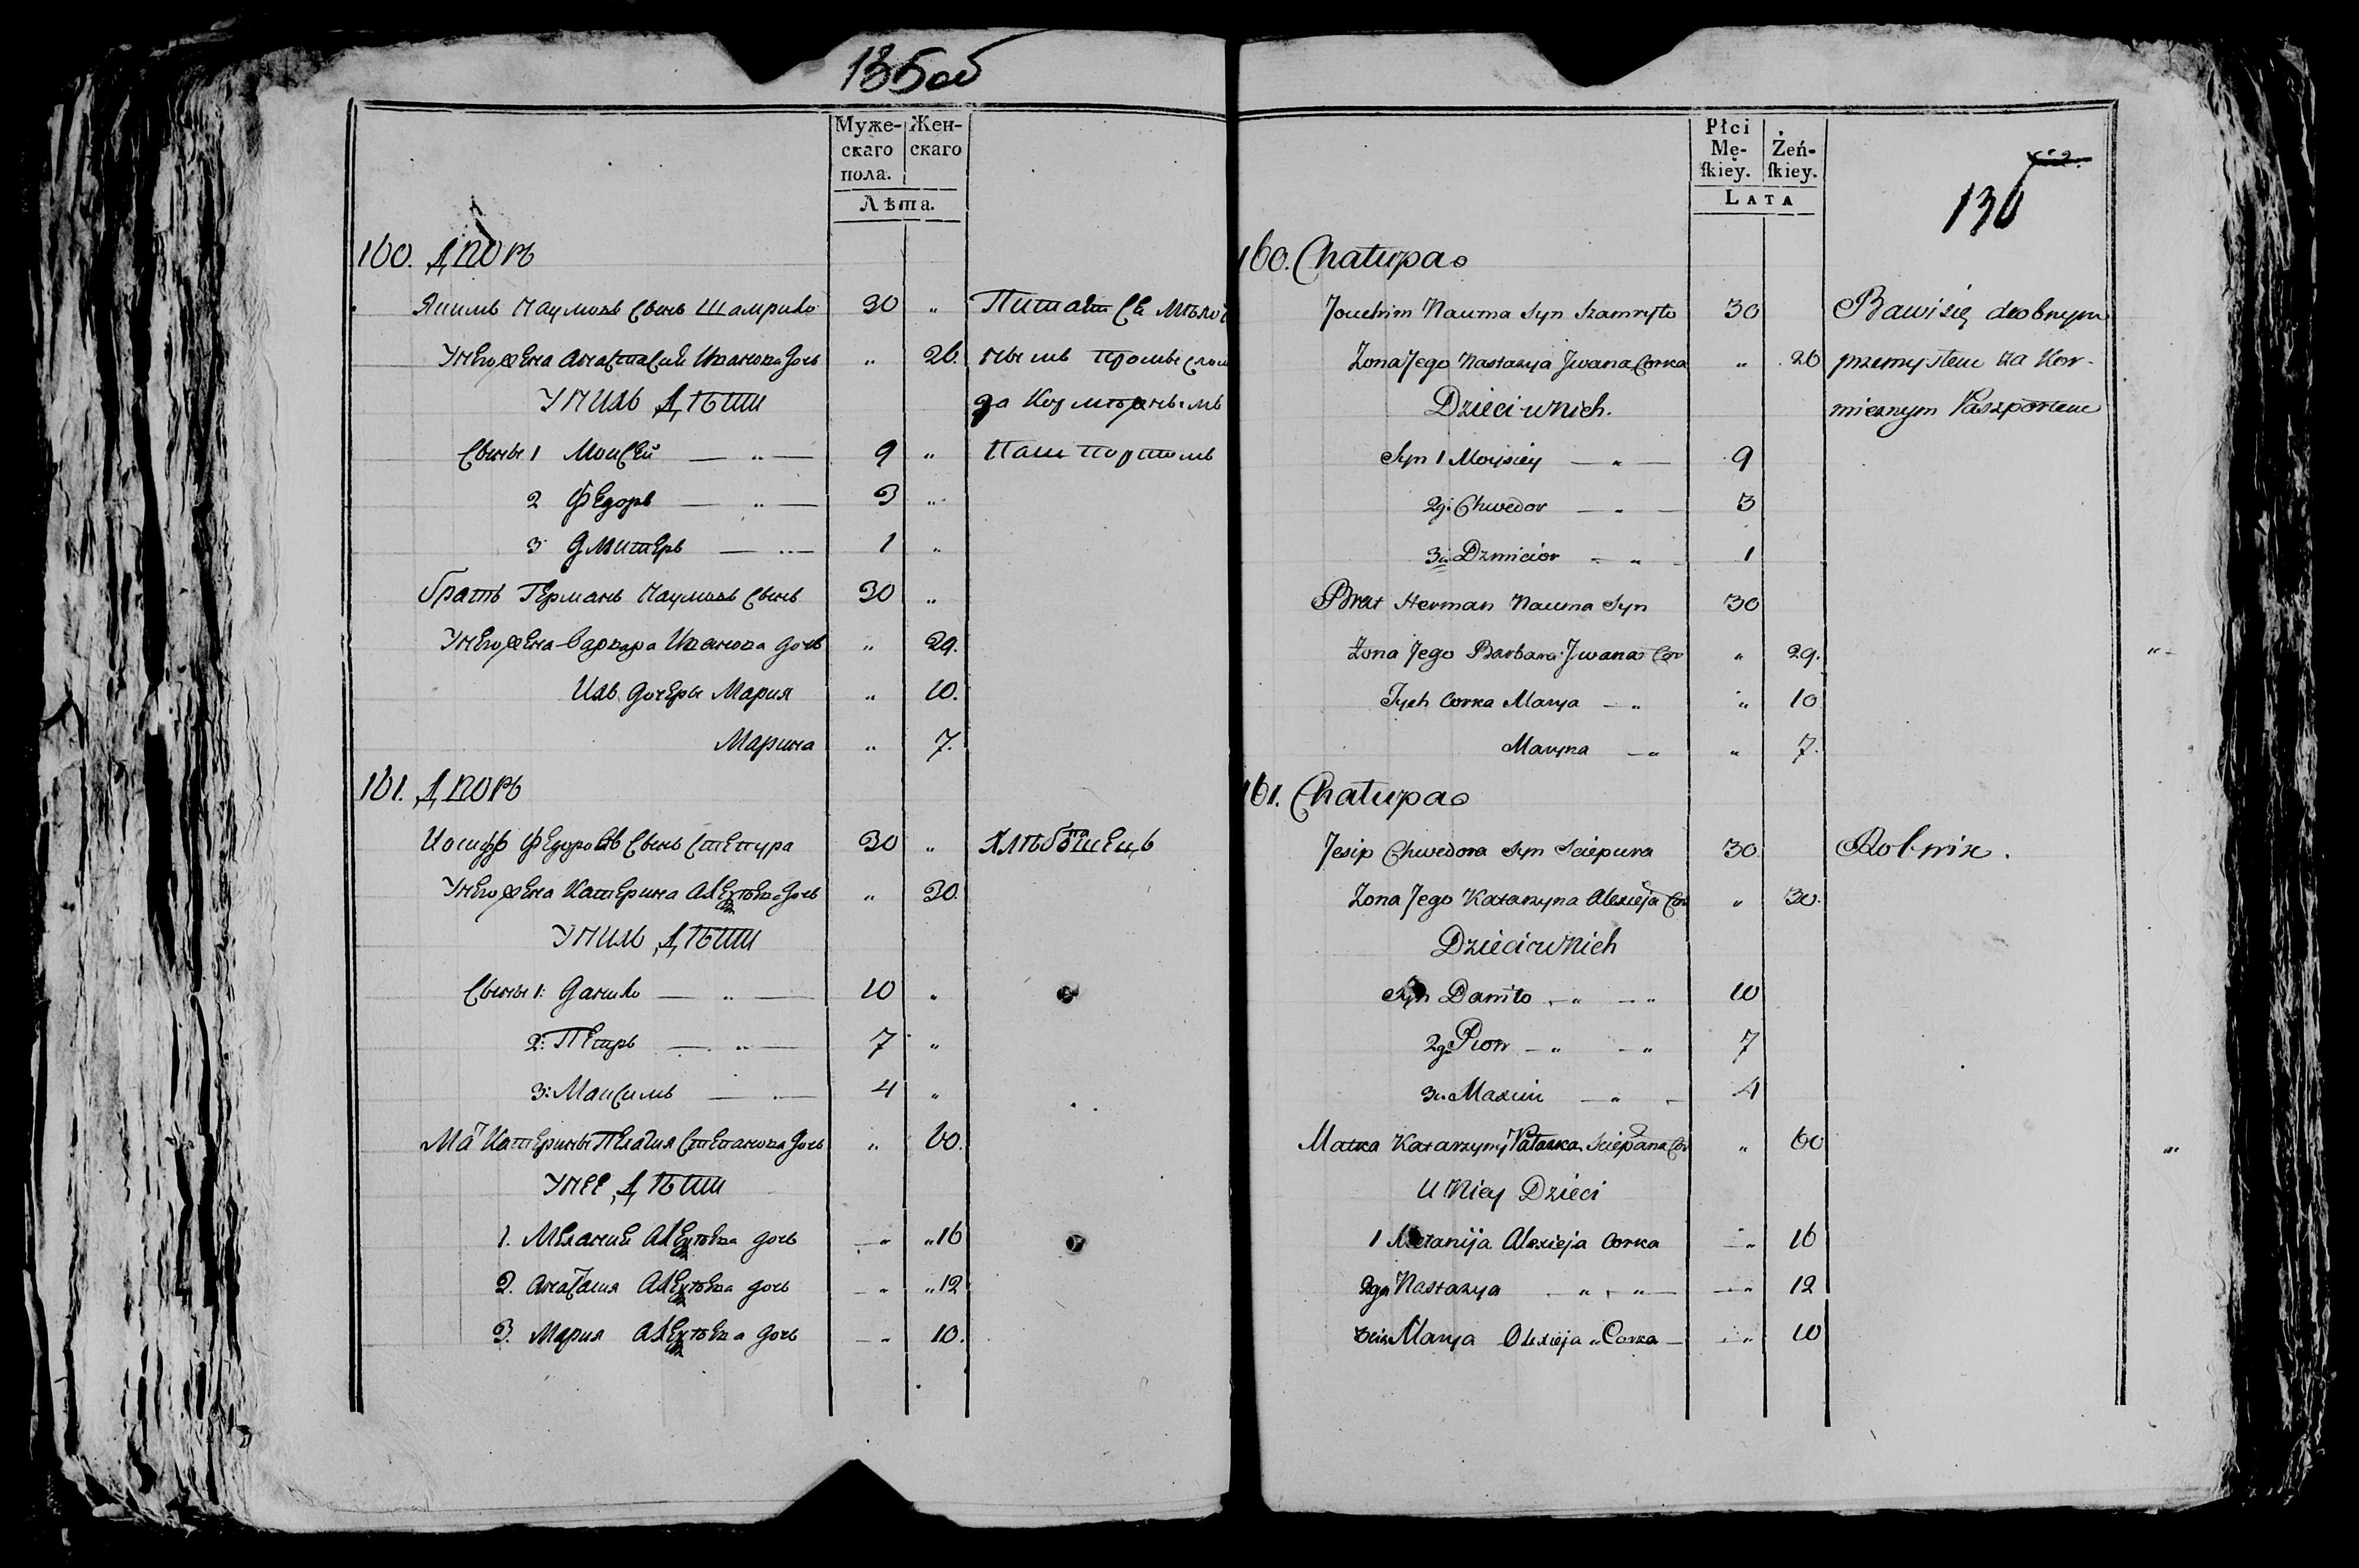 135об
Муже-
скаго
пола.
Жен-
скаго
Лѣта.
160. Дворъ
Якимъ Наумовъ Сынъ Шамрило 30 „ Питает Ся Мѣло
У Него Жена Анастасия Иванова Дочь „ 26. ным промысло
У Нихъ Дѣти за Кормежнымъ
Сыны 1 Моисей — „ — 9 „ Пашпортомъ
2 Федоръ — „ — 3 „
3 Дмитеръ — „ — 1 „
братъ Германъ Наумовъ Сынъ 30 „
У Него Жена Варвара Иванова дочь „ 29.
Ихъ дочеры Мария „ 10.
Марина „ 7.
161. Дворъ
Иосифъ Федоровъ Сынъ Степура 30 „ Хлѣбопашецъ
У Него Жена Катерина Дочь „ 30.
У Нихъ Дѣти
Сыны 1: Данило — „ — 10 „
2: Петръ — „ — 7 „
3: Максимъ — „ — 4 „
Катерины Пелагия Степанова Дочь „ 60.
У Нее Дѣти
1. Мелания дочь — „ „ 16
2. дочь — „ „ 12
3. Мария дочь — „ 10.
Płci
Mę-
ſkiey.
Żeń-
ſkiey.
LATA
136
160. Chałupa
Jouchim Nauma Syn Szamryło 30 Bawi się drobnym
Zona Jego Nastazya Jwana Corka „ 26 przemysłem za Kor-
Dzieci u Nich. miecznym Paszportem
Syn 1 Moysiey — „ — 9
2gi Chwedor — „ — 3
3ci Dzmicior — „ — 1
Brat Herman Nauma Syn 30
Zona Jego Barbara Jwana Cor „ 29.
Jych Corka Marya — „ „ 10
Maryna — „ „ 7.
161. Chałupa
Jesip Chwedora Syn Sciepura 30 Rolnik.
Zona Jego Katarzyna Alexieja Cor „ 30.
Dzieci u Nich
Syn Daniło — „ — „ 10
2gi Piotr — „ — „ 7
3ci Maxim — „ — 4
Matka Katarzyny Sciepana Cor „ 60
U Niey Dzieci
1 Mełanija Alexieja Corka — „ 16
2ga Nastazya — „ — „ — — „ 12
3cia Marya Olexieja „ Corka — — „ 10